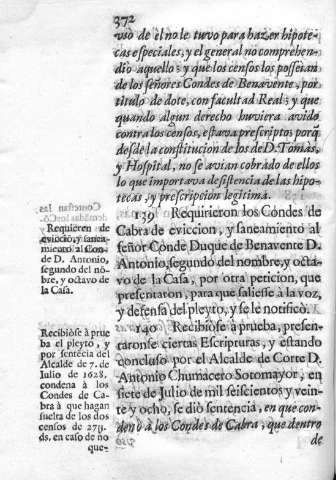 372
vio de el no le tuvo para hazer hipote-
cas especiales, y el general no comprehen-
dio aquello; y que los censos los posseìan
de los señores Condes de Benavente, por
titulo de dote, con facultad Real; y que
quando algun derecho huviera avido
contra los censos, estava prescripto, porq̃
desde la constitucion de los de D. Tomàs,
y Hospital, no se avian cobrado de ellos
lo que importava desistencia de las hipo-
tecas, y prescripcion legitima.
139 Requirieron los Condes de
Cabra de eviccion, y saneamiento al
señor Conde Duque de Benavente D.
Antonio, segundo del nombre, y octa-
vo de la Casa, por otra peticion, que
presentaron, para que saliesse à la voz,
y defensa del pleyto, y se le notificò.
140 Recibiòse à prueba, presen-
taronse ciertas Escripturas, y estando
concluso por el Alcalde de Corte D.
Antonio Chumacero Sotomayor, en
siete de Julio de mil seiscientos y vein-
te y ocho, se diò sentencia, en que con-
denò à los Condes de Cabra, que dentro
de
Requieren de
eviccio, y sanea-
miento al Con-
de D. Antonio,
segundo del nõ-
bre, y octavo de
la Casa.
Recibiòse à prue
ba el pleyto, y
por sentẽcia del
Alcalde de 7. de
Julio de 1628.
condena à los
Condes de Ca-
bra à que hagan
suelta de los dos
censos de 27y.
ds. en caso de no
que-